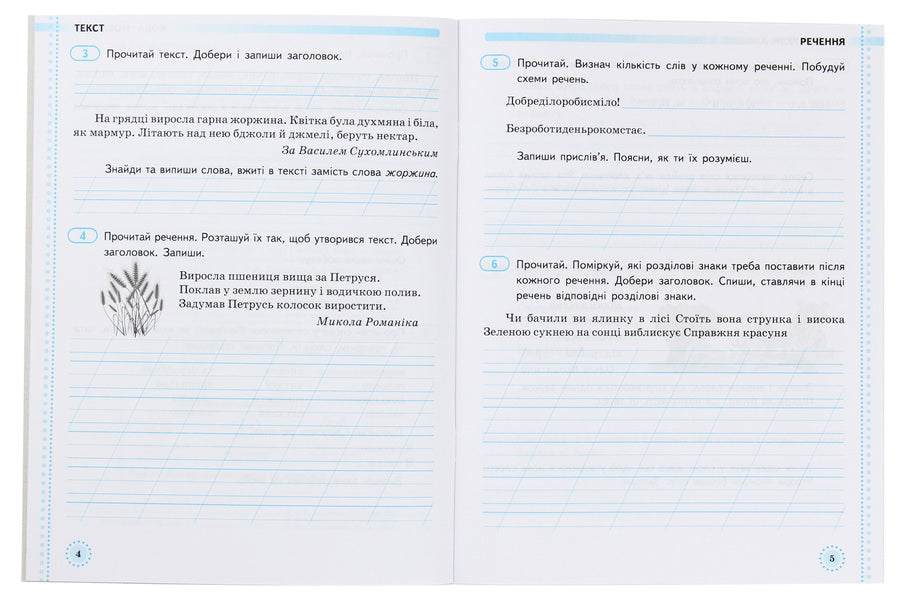 ТЕКСТ
3 Прочитай текст. Добери і запиши заголовок.
На грядці виросла гарна жоржина. Квітка була духмяна і біла,
як мармур. Літають над нею бджоли й джмелі, беруть нектар.
За Василем Сухомлинським
Знайди та випиши слова, вжиті в тексті замість слова жоржина.
4 Прочитай речення. Розташуй їх так, щоб утворився текст. Добери
заголовок. Запиши.
Виросла пшениця вища за Петруся.
Поклав у землю зернину і водичкою полив.
Задумав Петрусь колосок виростити.
Микола Романіка
4
РЕЧЕННЯ
5 Прочитай. Визнач кількість слів у кожному реченні. Побудуй
схеми речень.
Добределоробисміло!
Безроботиденьрокомстає.
Запиши прислів’я. Поясни, як ти їх розумієш.
6 Прочитай. Поміркуй, які розділові знаки треба поставити після
кожного речення. Добери заголовок. Спиши, ставлячи в кінці
речень відповідні розділові знаки.
Чи бачили ви ялинку в лісі Стоїть вона струнка і висока
Зеленою сукнею на сонці виблискує Справжня красуня
5